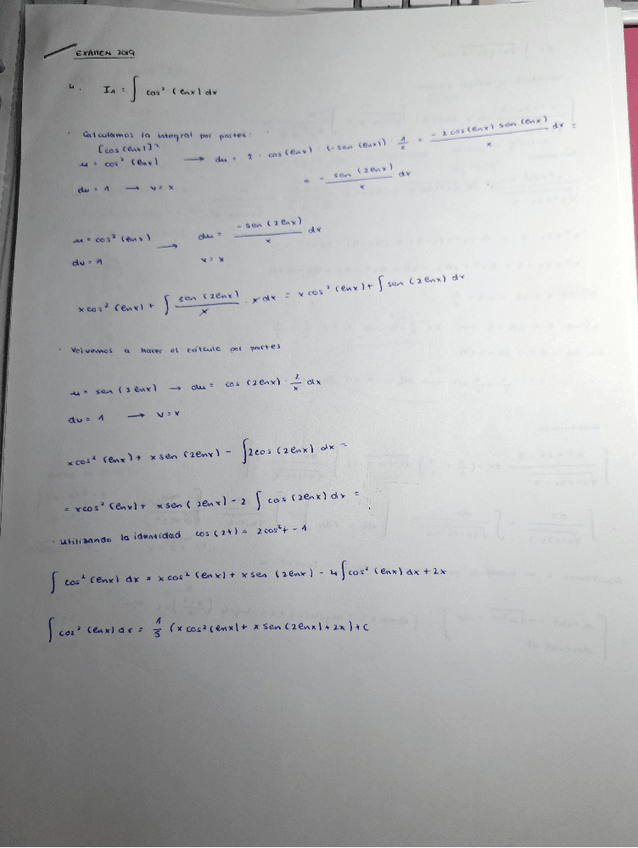 EXAMEN 2019
4. I₁ = ∫ cos² (lnx) dx
· Calculamos la integral por partes:
[cos (lnx)]²
u = cos² (lnx) → du = 2 · cos (lnx) (-sen (lnx)) 1/x = -2cos(lnx) sen (lnx)/x dx =
dv = 1 → v = x = - sen (2lnx)/x dx
u = cos² (lnx) → du = -sen (2lnx)/x dx
dv = 1 v = x
x cos² (lnx) + ∫ sen (2lnx)/x · x dx = x cos² (lnx) + ∫ sen (2lnx) dx
· Volvemos a hacer el cálculo por partes
u = sen (2lnx) → du = cos (2lnx) · 2/x dx
dv = 1 → v = x
x cos² (lnx) + x sen (2lnx) - ∫ 2cos (2lnx) dx =
= x cos² (lnx) + x sen (2lnx) - 2 ∫ cos (2lnx) dx =
· Utilizando la identidad cos (2t) = 2cos²t - 1
∫ cos² (lnx) dx = x cos² (lnx) + x sen (2lnx) - 4 ∫ cos² (lnx) dx + 2x
∫ cos² (lnx) dx = 1/5 (x cos² (lnx) + x sen (2lnx) + 2x) + C